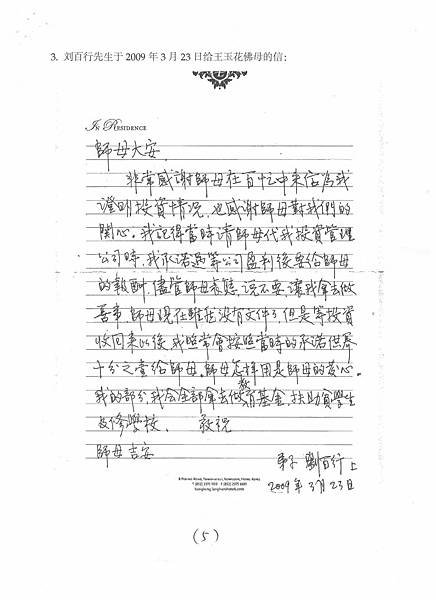 3. 刘百行先生于 2009 年 3 月 23 日给王玉花佛母的信:
IN RESIDENCE
師母大安
非常感謝師母在百忙中来信為我
證明投資情况,也感謝師母對我們的
関心。我記得當時請師母代我投資管理
公司時,我承諾過等公司盈利後要給師母
的報酬,儘管師母表態,说不要,讓我拿去做
善事 師母現在雖然没有文件了,但是等投資
收回来以後,我照常會按照當時的承诺供养
十分之壹给師母。師母怎樣用是師母的发心。
我的部分,我会全部拿去做教育基金,扶助貧學生
及修學校。 敬祝
師母吉安
弟子 劉百行 上
2009 年 3月 23日
(5)